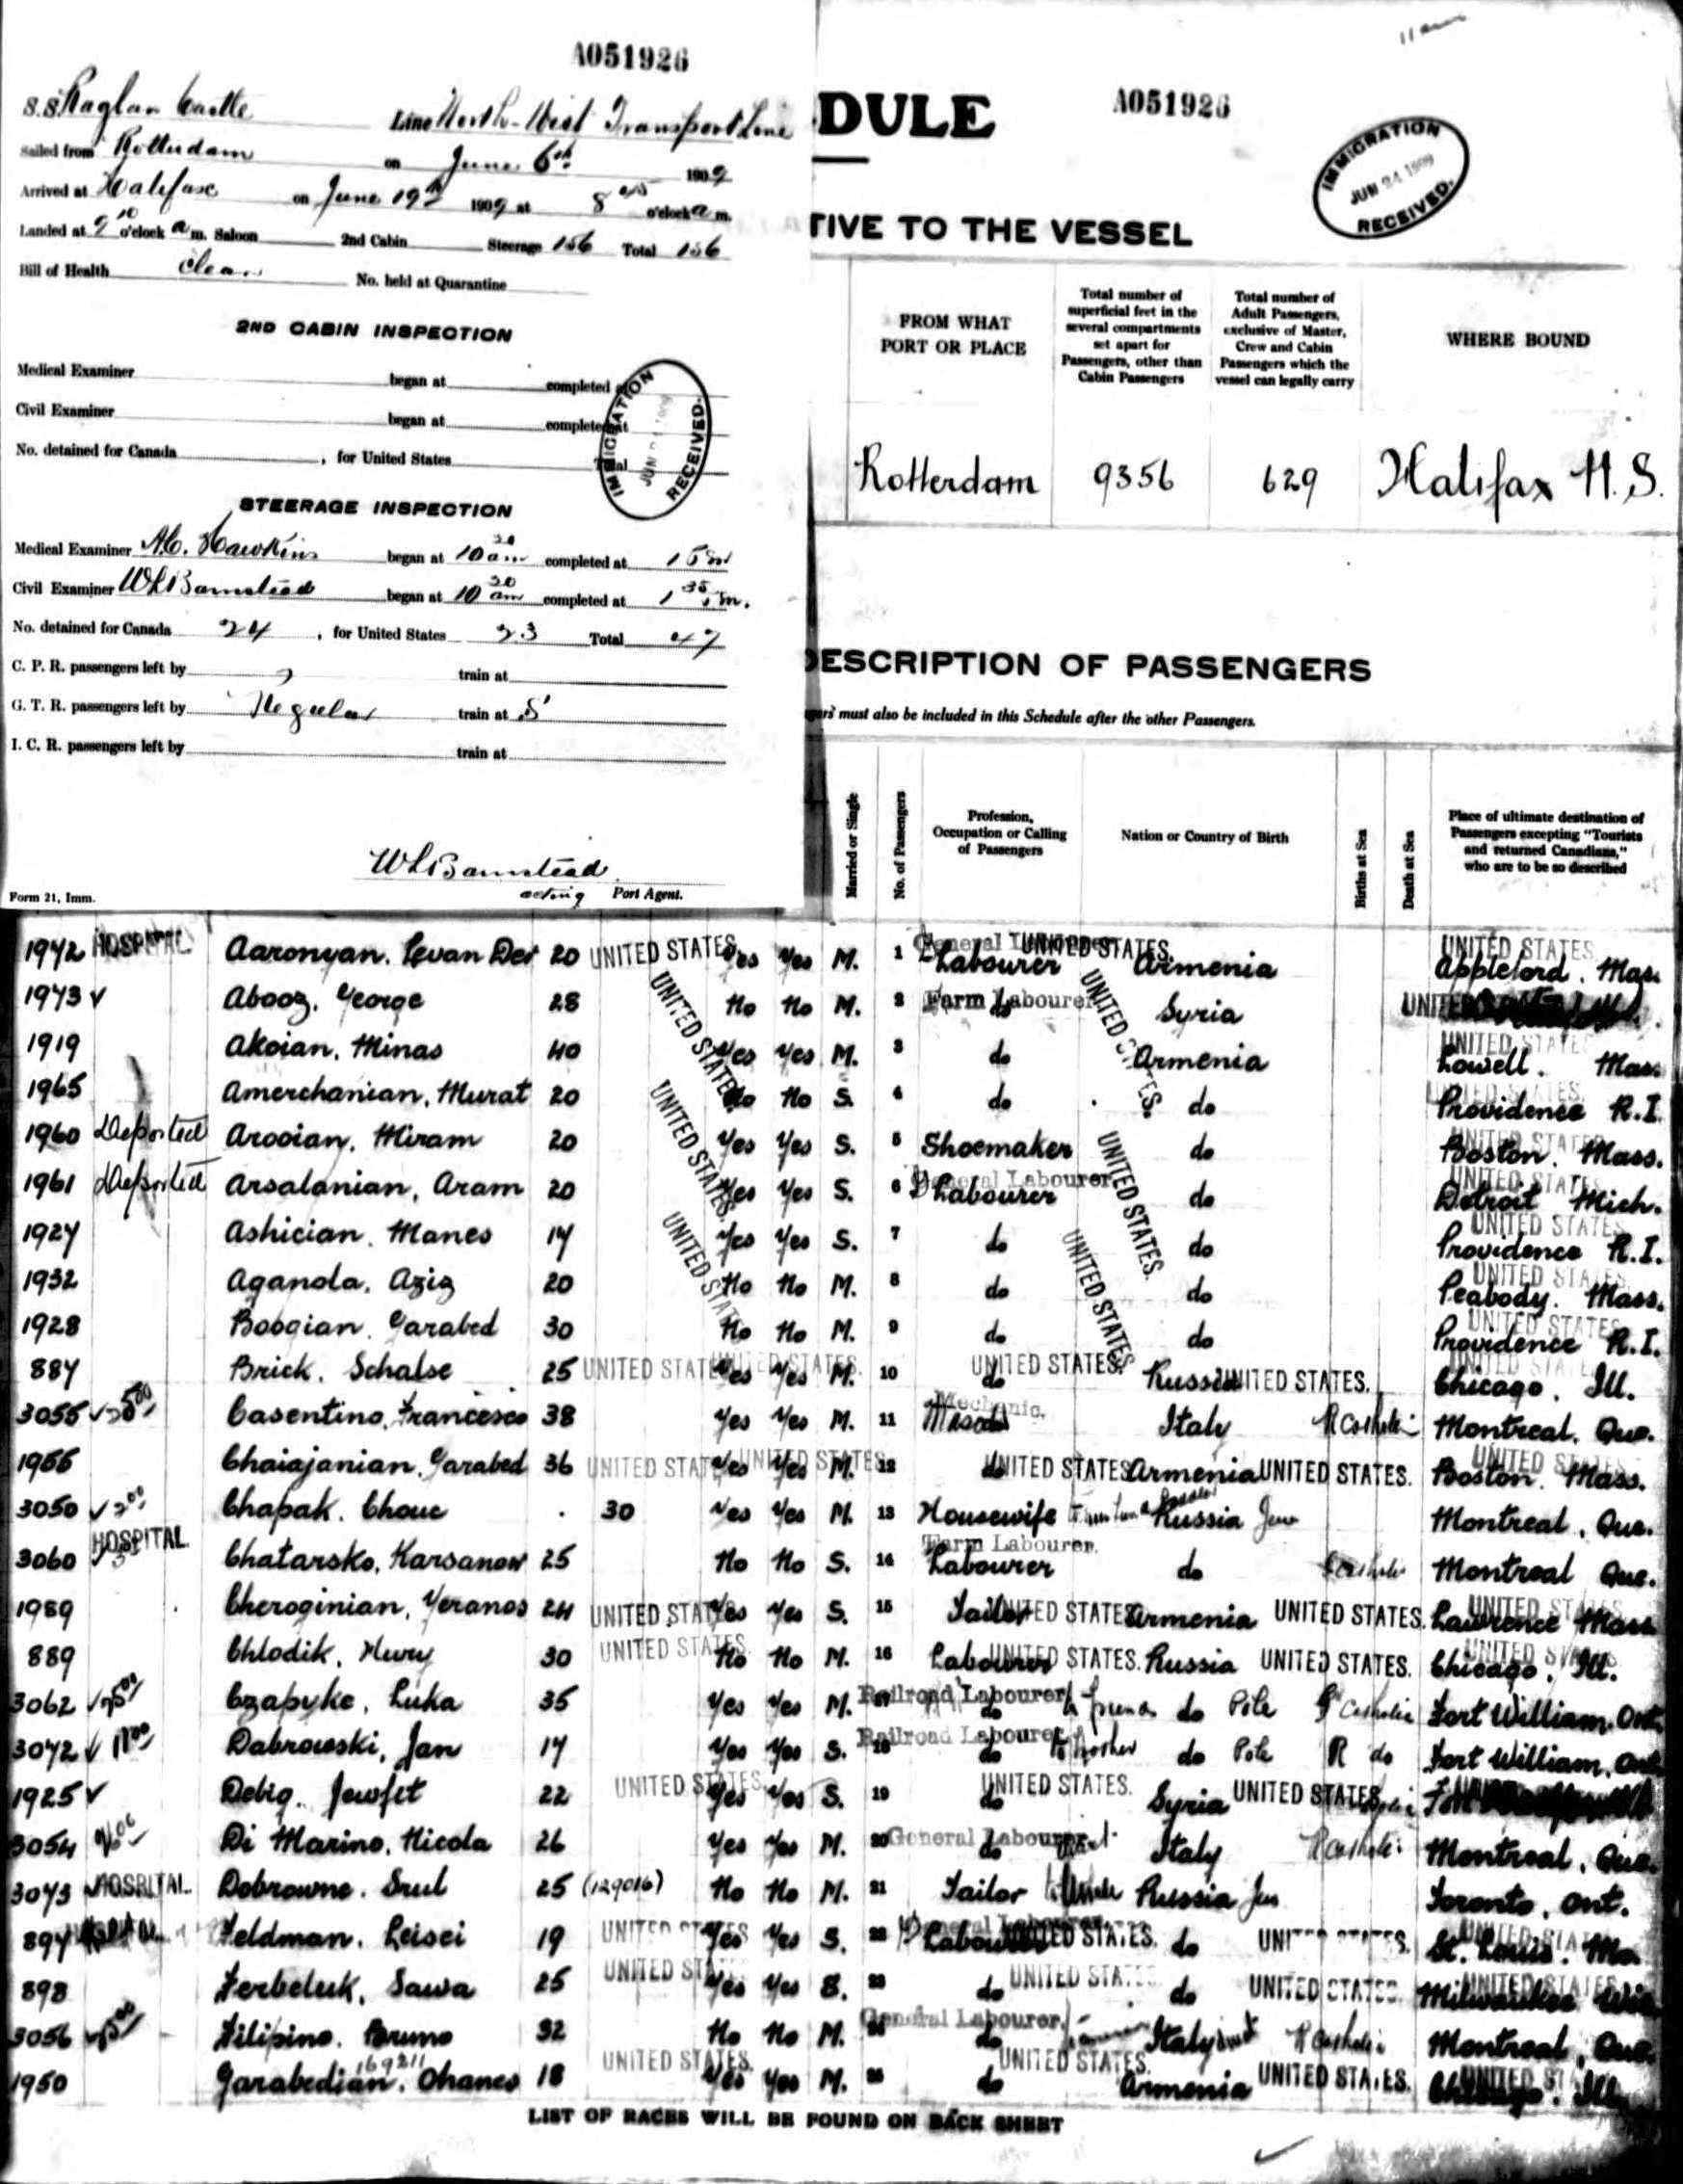 A051926
S.S. Raglan Castle Line North-West Transport Line
Sailed from Rotterdam on June 6th 1909
Arrived at Halifax on June 19th 1909 at 8 o'clock a m.
Landed at 9 10 o'clock a m. Saloon 2nd Cabin Steerage 156 Total 156
Bill of Health Clean No. held at Quarantine
2ND CABIN INSPECTION
Medical Examiner began at completed at
Civil Examiner began at completed at
No. detained for Canada , for United States Total
IMMIGRATION RECEIVED.
STEERAGE INSPECTION
Medical Examiner Hawkins began at 10 am completed at
Civil Examiner W L Barnstead began at 10 am completed at 1 35
No. detained for Canada 24 , for United States 23 Total 47
C. P. R. passengers left by train at
G. T. R. passengers left by Regular train at
I. C. R. passengers left by train at
W L Barnstead
acting Port Agent.
Form 21, Imm.
DULE
A051926
IMMIGRATION JUN 24 1909 RECEIVED.
TIVE TO THE VESSEL
FROM WHAT PORT OR PLACE
Total number of superficial feet in the several compartments set apart for Passengers, other than Cabin Passengers
Total number of Adult Passengers, exclusive of Master, Crew and Cabin Passengers which the vessel can legally carry
WHERE BOUND
Rotterdam 9356 629 Halifax N.S.
DESCRIPTION OF PASSENGERS
must also be included in this Schedule after the other Passengers.
Married or Single
No. of Passengers
Profession, Occupation or Calling of Passengers
Nation or Country of Birth
Births at Sea
Death at Sea
Place of ultimate destination of Passengers excepting "Tourists and returned Canadians," who are to be so described
1942 HOSPITAL Aaronyan, Levan Der 20 UNITED STATES. Yes Yes M. 1 Labourer UNITED STATES. Armenia UNITED STATES Mass.
1943 Abooz, George 28 No No M. 2 Farm Labourer do Syria
1919 Akoian, Minas 40 Yes Yes M. 3 do Armenia Lowell. Mass.
1965 Amerchanian, Murat 20 No No S. 4 do do Providence R.I.
1960 Deported Arooian, Miram 20 Yes Yes S. 5 Shoemaker do Boston. Mass.
1961 Deported Arsalanian, Aram 20 Yes Yes S. 6 General Labourer Labourer do Detroit Mich.
1924 Ashician, Manes 17 Yes Yes S. 7 do do Providence R.I.
1932 Aganola, Aziz 20 No No M. 8 do do Peabody. Mass.
1928 Boogian, Garabed 30 No No M. 9 do do Providence R.I.
887 Brick, Schalse 25 UNITED STATES Yes Yes M. 10 do UNITED STATES. Russia UNITED STATES. Chicago, Ill.
3055 Casentino, Francesco 38 Yes Yes M. 11 Mechanic. Italy Montreal, Que.
1966 Chaiajanian, Garabed 36 UNITED STATES Yes Yes M. 12 do UNITED STATES Armenia UNITED STATES. Boston. Mass.
3050 Chapak, Chouc 30 Yes Yes M. 13 Housewife Russia Jew Montreal, Que.
3060 HOSPITAL. Chatarsko, Karsanow 25 No No S. 14 Farm Labourer. Labourer do Montreal Que.
1989 Cheroginian, Yeranos 24 UNITED STATES Yes Yes S. 15 Tailor UNITED STATES Armenia UNITED STATES. Lawrence Mass
889 Chlodik, Hwry 30 UNITED STATES. No No M. 16 Labourer UNITED STATES. Russia UNITED STATES. Chicago, Ill.
3062 Czapyke, Luka 35 Yes Yes M. Railroad Labourer do do Pole Fort William. Ont.
3072 Dabrowski, Jan 17 Yes Yes S. Railroad Labourer do do Pole R do Fort William. Ont.
1925 Debig, Jewfet 22 UNITED STATES. Yes Yes S. 19 do UNITED STATES. Syria UNITED STATES.
3054 Di Marino, Nicola 26 Yes Yes M. 20 General Labourer. do Italy Montreal, Que.
3073 HOSPITAL. Dobrowne, Srul 25 (129016) No No M. 21 Tailor Russia Jew Toronto, Ont.
894 Feldman, Leisei 19 UNITED STATES Yes Yes S. 22 Labourer UNITED STATES. do UNITED STATES. St. Louis. Mo.
898 Ferbeluk, Sawa 25 UNITED STATES Yes Yes S. 23 do UNITED STATES do UNITED STATES. Milwaukee Wis
3056 Filipino, Bruno 32 No No M. General Labourer. do Italy Montreal, Que.
1950 Garabedian, Ohanes 18 169211 UNITED STATES. Yes Yes M. 25 do UNITED STATES. Armenia UNITED STATES. Chicago. Ill.
LIST OF RACES WILL BE FOUND ON BACK SHEET